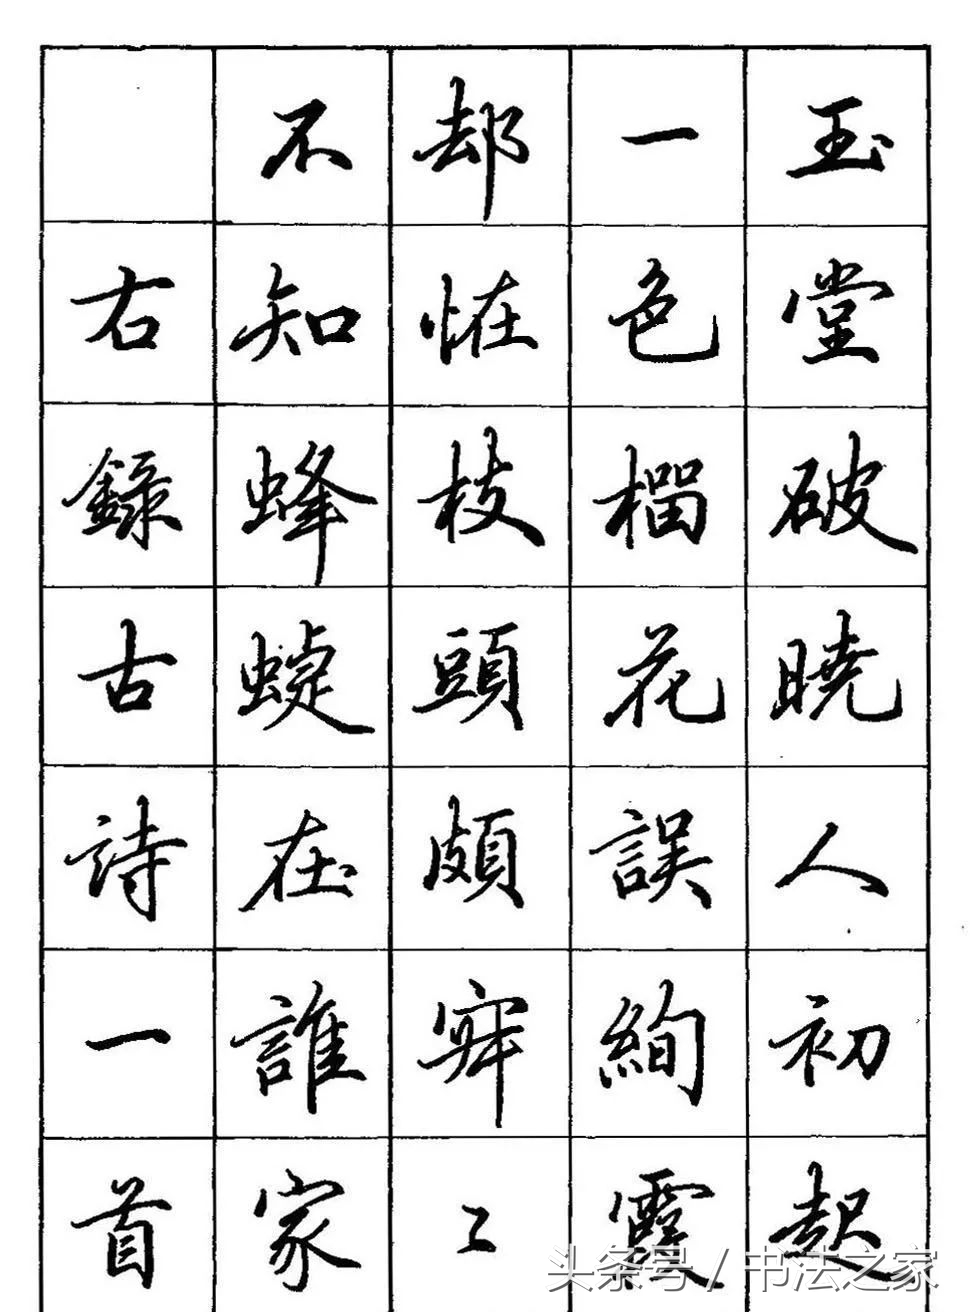 玉堂破曉人初起
一色榴花誤絢霞
却怪枝頭頗寂〻
不知蜂蜨在誰家
右錄古詩一首
头条号 / 书法之家